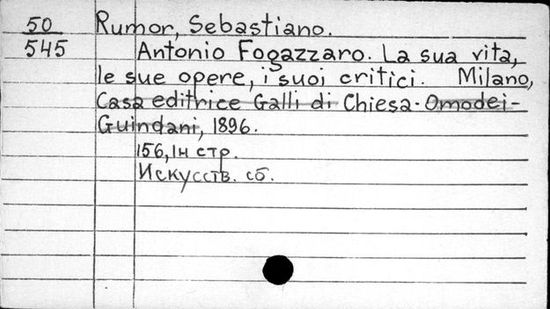 50 Rumor, Sebastiano.
545 Antonio Fogazzaro. La sua vita,
le sue opere, i suoi critici. Milano,
Casa editrice Galli di Chiesa-Omodei-
Guindani, 1896.
156, 1н стр.
Искусств. сб.